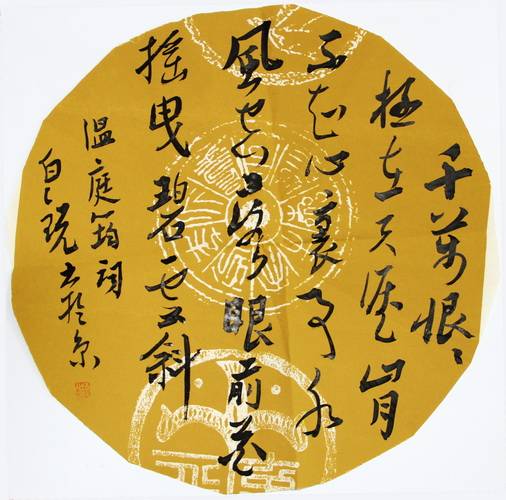 千萬恨〻
极在天涯山月
不知心裏事水
風空落眼前花
搖曳碧雲斜
溫庭筠詞
书於京